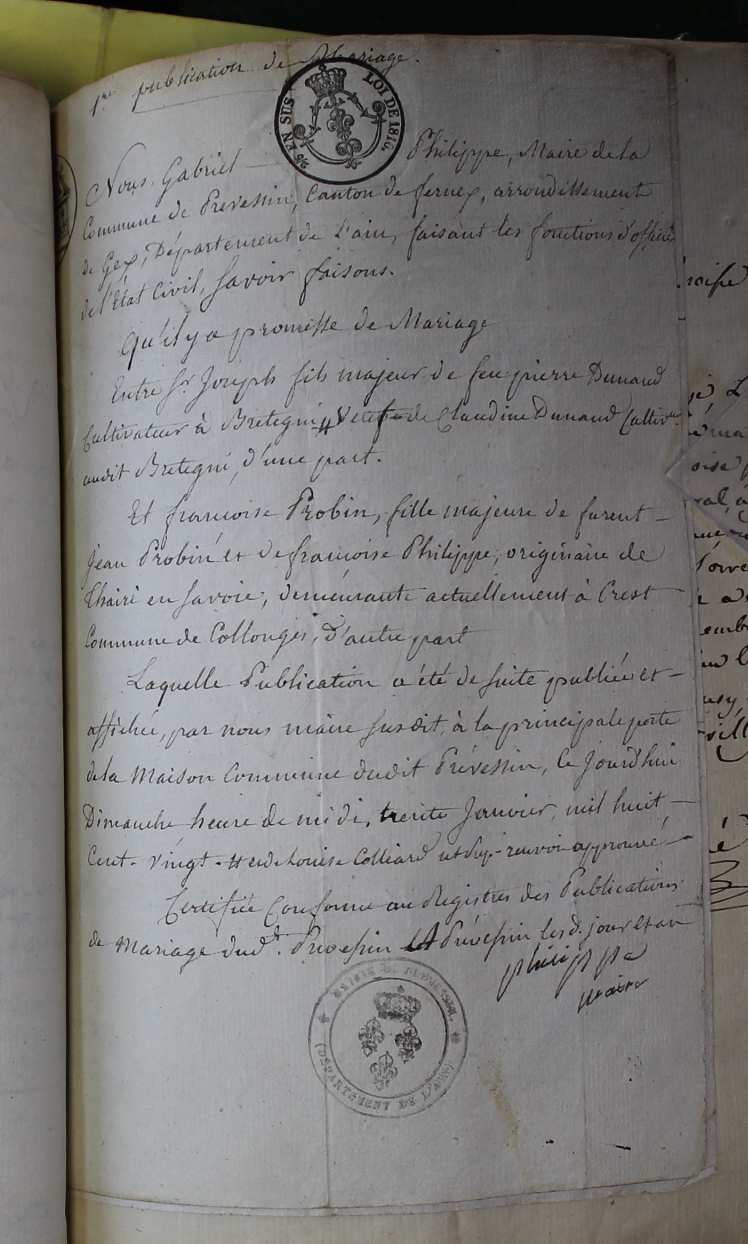 1re publication de Mariage.
25 EN SUS LOI DE 1816.
Nous Gabriel — Philippe, Maire de la
Commune de Prevessin, Canton de ferney, arrondissement
de Gex, Département de l'ain, faisant les fonctions d'officier
de l'Etat Civil, Savoir faisons.
Qu'il y a promesse de Mariage
Entre Sr Joseph fils majeur de feu pierre Dunand
Cultivateur à Bretegni # Veuf de Claudine Dunand Cultivr
audit Bretegni, d'une part.
Et francoise Probin, fille majeure de furent
Jean Probin et de francoise Philippe, originaire de
Thairi en Savoie, demeurante actuellement à Crest
Commune de Collonges, D'autre part
Laquelle Publication a été de suite publiée et
affichée, par nous maire susdit, à la principale porte
de la Maison Commune dudit Prévessin, Ce Jourd'hui
Dimanche heure de midi, trente Janvier, mil huit
Cent - Vingt - # et de Louise Colliard ut sup - renvoi approuvé
Certifiée Conforme au Registres des Publications
de Mariage dud. Prevessin A Prévessin lesd. jour et an
philippe
maire
MAIRIE DE PREVESSIN.
(DEPARTEMENT DE L'AIN)